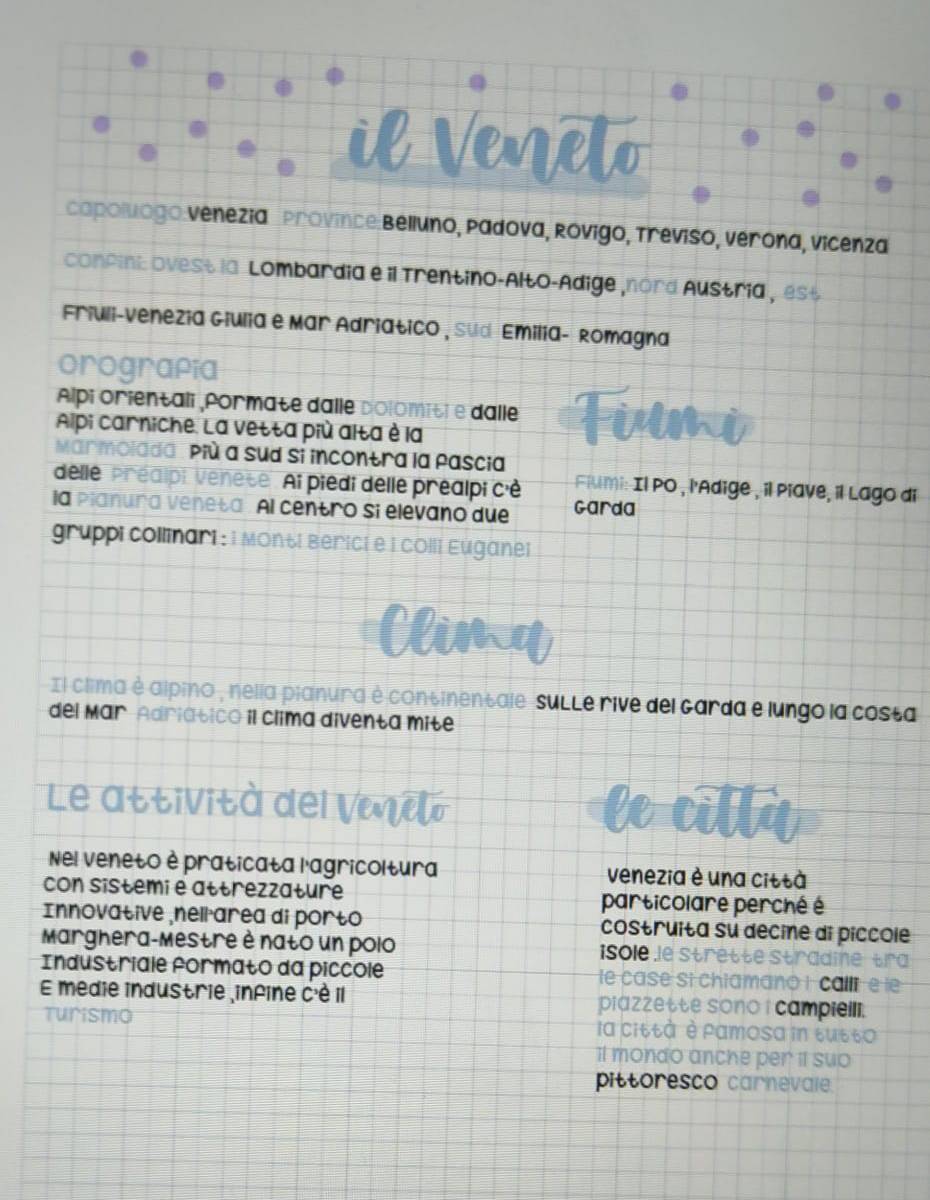 il Veneto
capoluogo:Venezia Province:Belluno, Padova, Rovigo, Treviso, Verona, Vicenza
Confini: ovest la Lombardia e il Trentino-Alto-Adige ,nord Austria , est
Friuli-Venezia Giulia e Mar Adriatico , sud Emilia- Romagna
orografia
Alpi orientali ,formate dalle Dolomiti e dalle
Alpi carniche. La vetta più alta è la
Marmolada Più a sud si incontra la fascia
delle Prealpi venete Ai piedi delle prealpi c'è
la Pianura veneta Al centro si elevano due
gruppi collinari : i Monti Berici e i colli Euganei
Fiumi
Fiumi: Il Po , l'Adige , il Piave, il Lago di
Garda
Clima
Il clima è alpino , nella pianura è continentale SULLe rive del Garda e lungo la costa
del Mar Adriatico il clima diventa mite
Le attività del Veneto
Nel veneto è praticata l'agricoltura
con sistemi e attrezzature
Innovative ,nell'area di porto
Marghera-Mestre è nato un polo
Industriale formato da piccole
E medie industrie ,infine c'è il
Turismo
le città
Venezia è una città
particolare perché é
costruita su decine di piccole
isole .le strette stradine tra
le case si chiamano i calli e le
piazzette sono i campielli.
la città è famosa in tutto
il mondo anche per il suo
pittoresco carnevale.